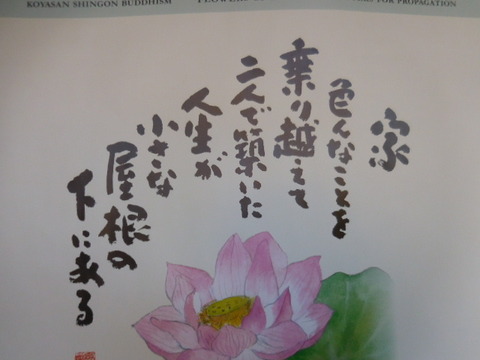 KOYASAN SHINGON BUDDHISM
FOR PROPAGATION
色んなことを
乗り越えて
二人で築いた
人生が
小さな
屋根の
下にある